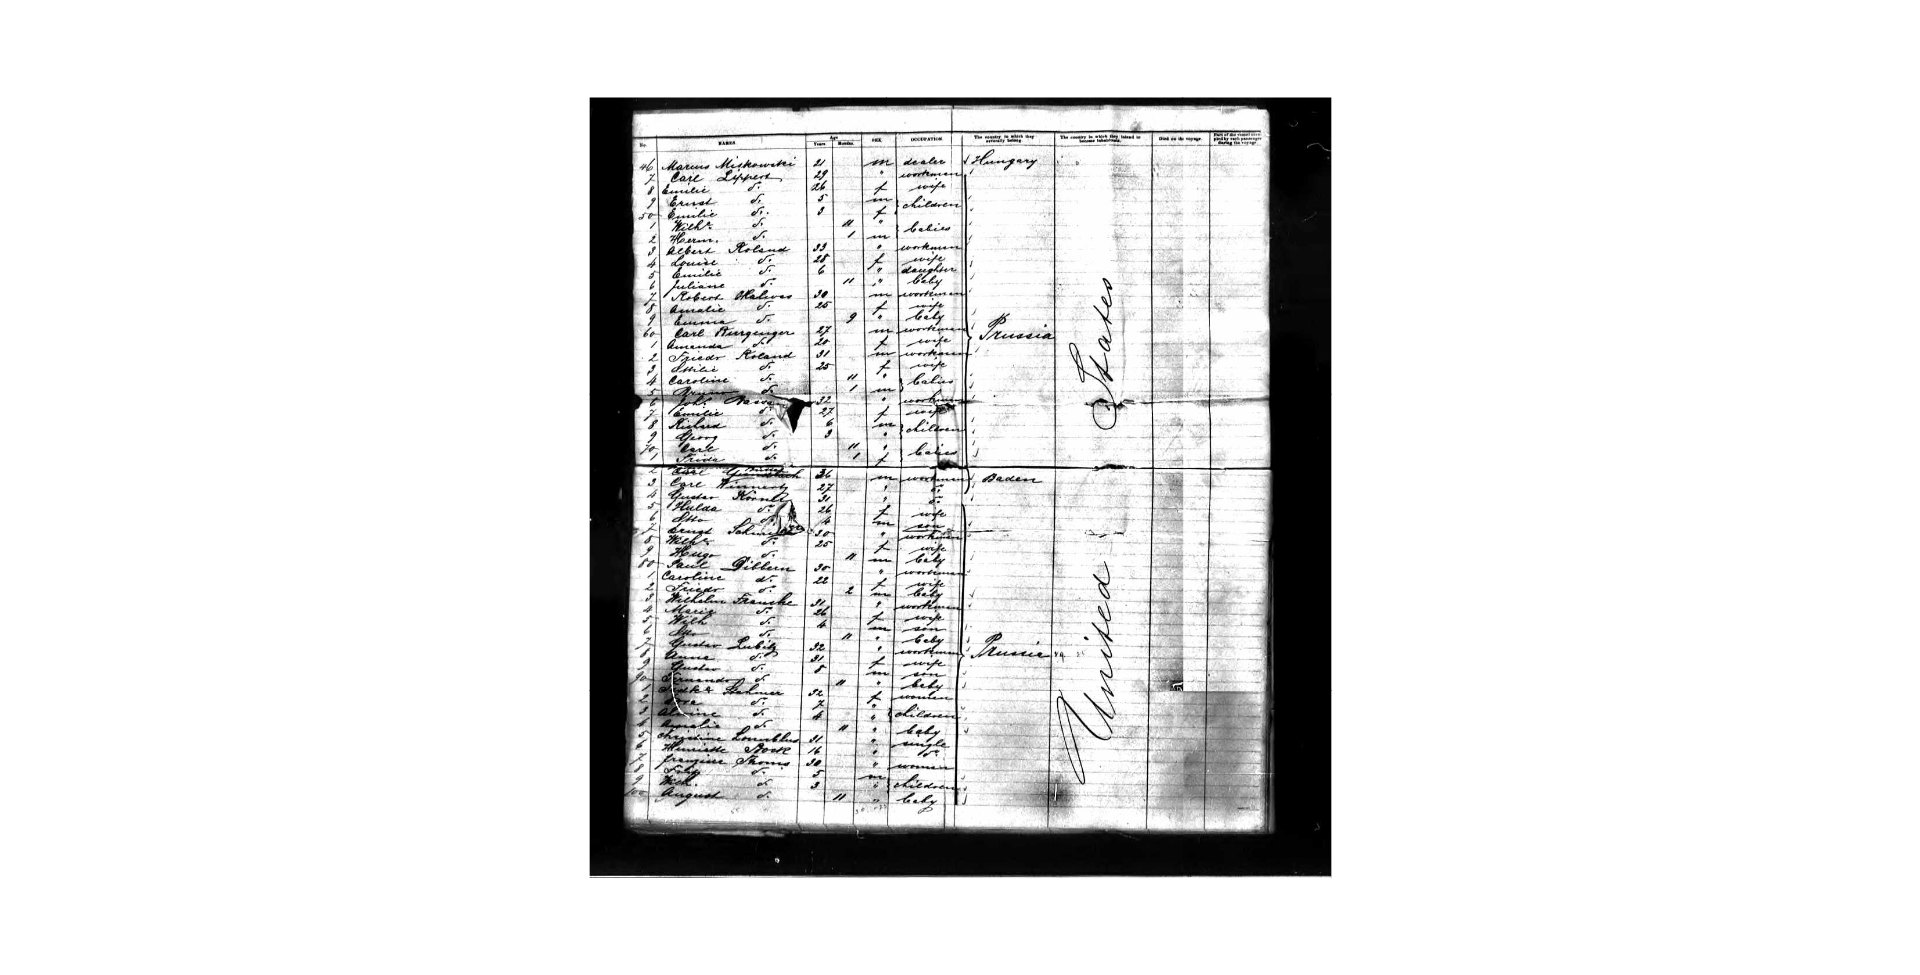 No. NAMES Age Years Months SEX OCCUPATION The country in which they severally belong. The country in which they intend to become inhabitants. Died on the voyage. Part of the vessel occupied by each passenger during the voyage.
46 Marcus Mitkowski 21 m dealer Hungary
7 Carl Lippert 29 " workman
8 Emilie d. 26 f wife
9 Ernst d. 5 m children
50 Emilie d. 3 f
1 Wilh. d. 11 " babies
2 Herm. d. 1 m
3 Albert Roland 33 " workman
4 Louise d. 28 f wife
5 Emilie d. 6 " daughter
6 Juliane d. 11 " baby
7 Robert 30 m workman
8 Amalie d. 25 f wife
9 Emma d. 9 " baby
60 Carl 27 m workman Prussia
1 Amanda d. 20 f wife
2 Friedr Roland 31 m workman
3 Ottilie d. 25 f wife
4 Caroline d. 11 " babies
5 Bruno d. 1 m
6 Joh. 32 " workman
7 Emilie d. 27 f wife
8 Richard d. 6 m children
9 Georg d. 3 "
70 Carl d. 11 " babies
1 Frida d. 1 f
2 Carl 34 m workman Baden
3 Carl 27 " d.
4 Gustav 31 " d.
5 Hulda d. 26 f wife
6 Otto d. 4 m son
7 Ernst 30 " workman
8 Wilh. d. 25 f wife
9 Hugo d. 11 m baby
80 Paul Dibbern 30 " workman
1 Caroline d. 22 f wife
2 Friedr d. 2 m baby
3 Wilhelm Franske 31 " workman
4 Marie d. 26 f wife
5 Wilh d. 4 m son
6 Otto d. 11 " baby
7 Gustav Lubitz 32 " workman Prussia
8 Anna d. 31 f wife
9 Gustav d. 8 m son
90 Fernando d. 11 " baby
1 32 f women
2 d. 7 " children
3 d. 4 "
4 Amalie d. 11 " baby
5 31 " single
6 Henriette Bock 16 " d.
7 Thoms 30 " women
8 d. 5 m children
9 Wilh. d. 3 "
100 August d. 11 " baby
United States